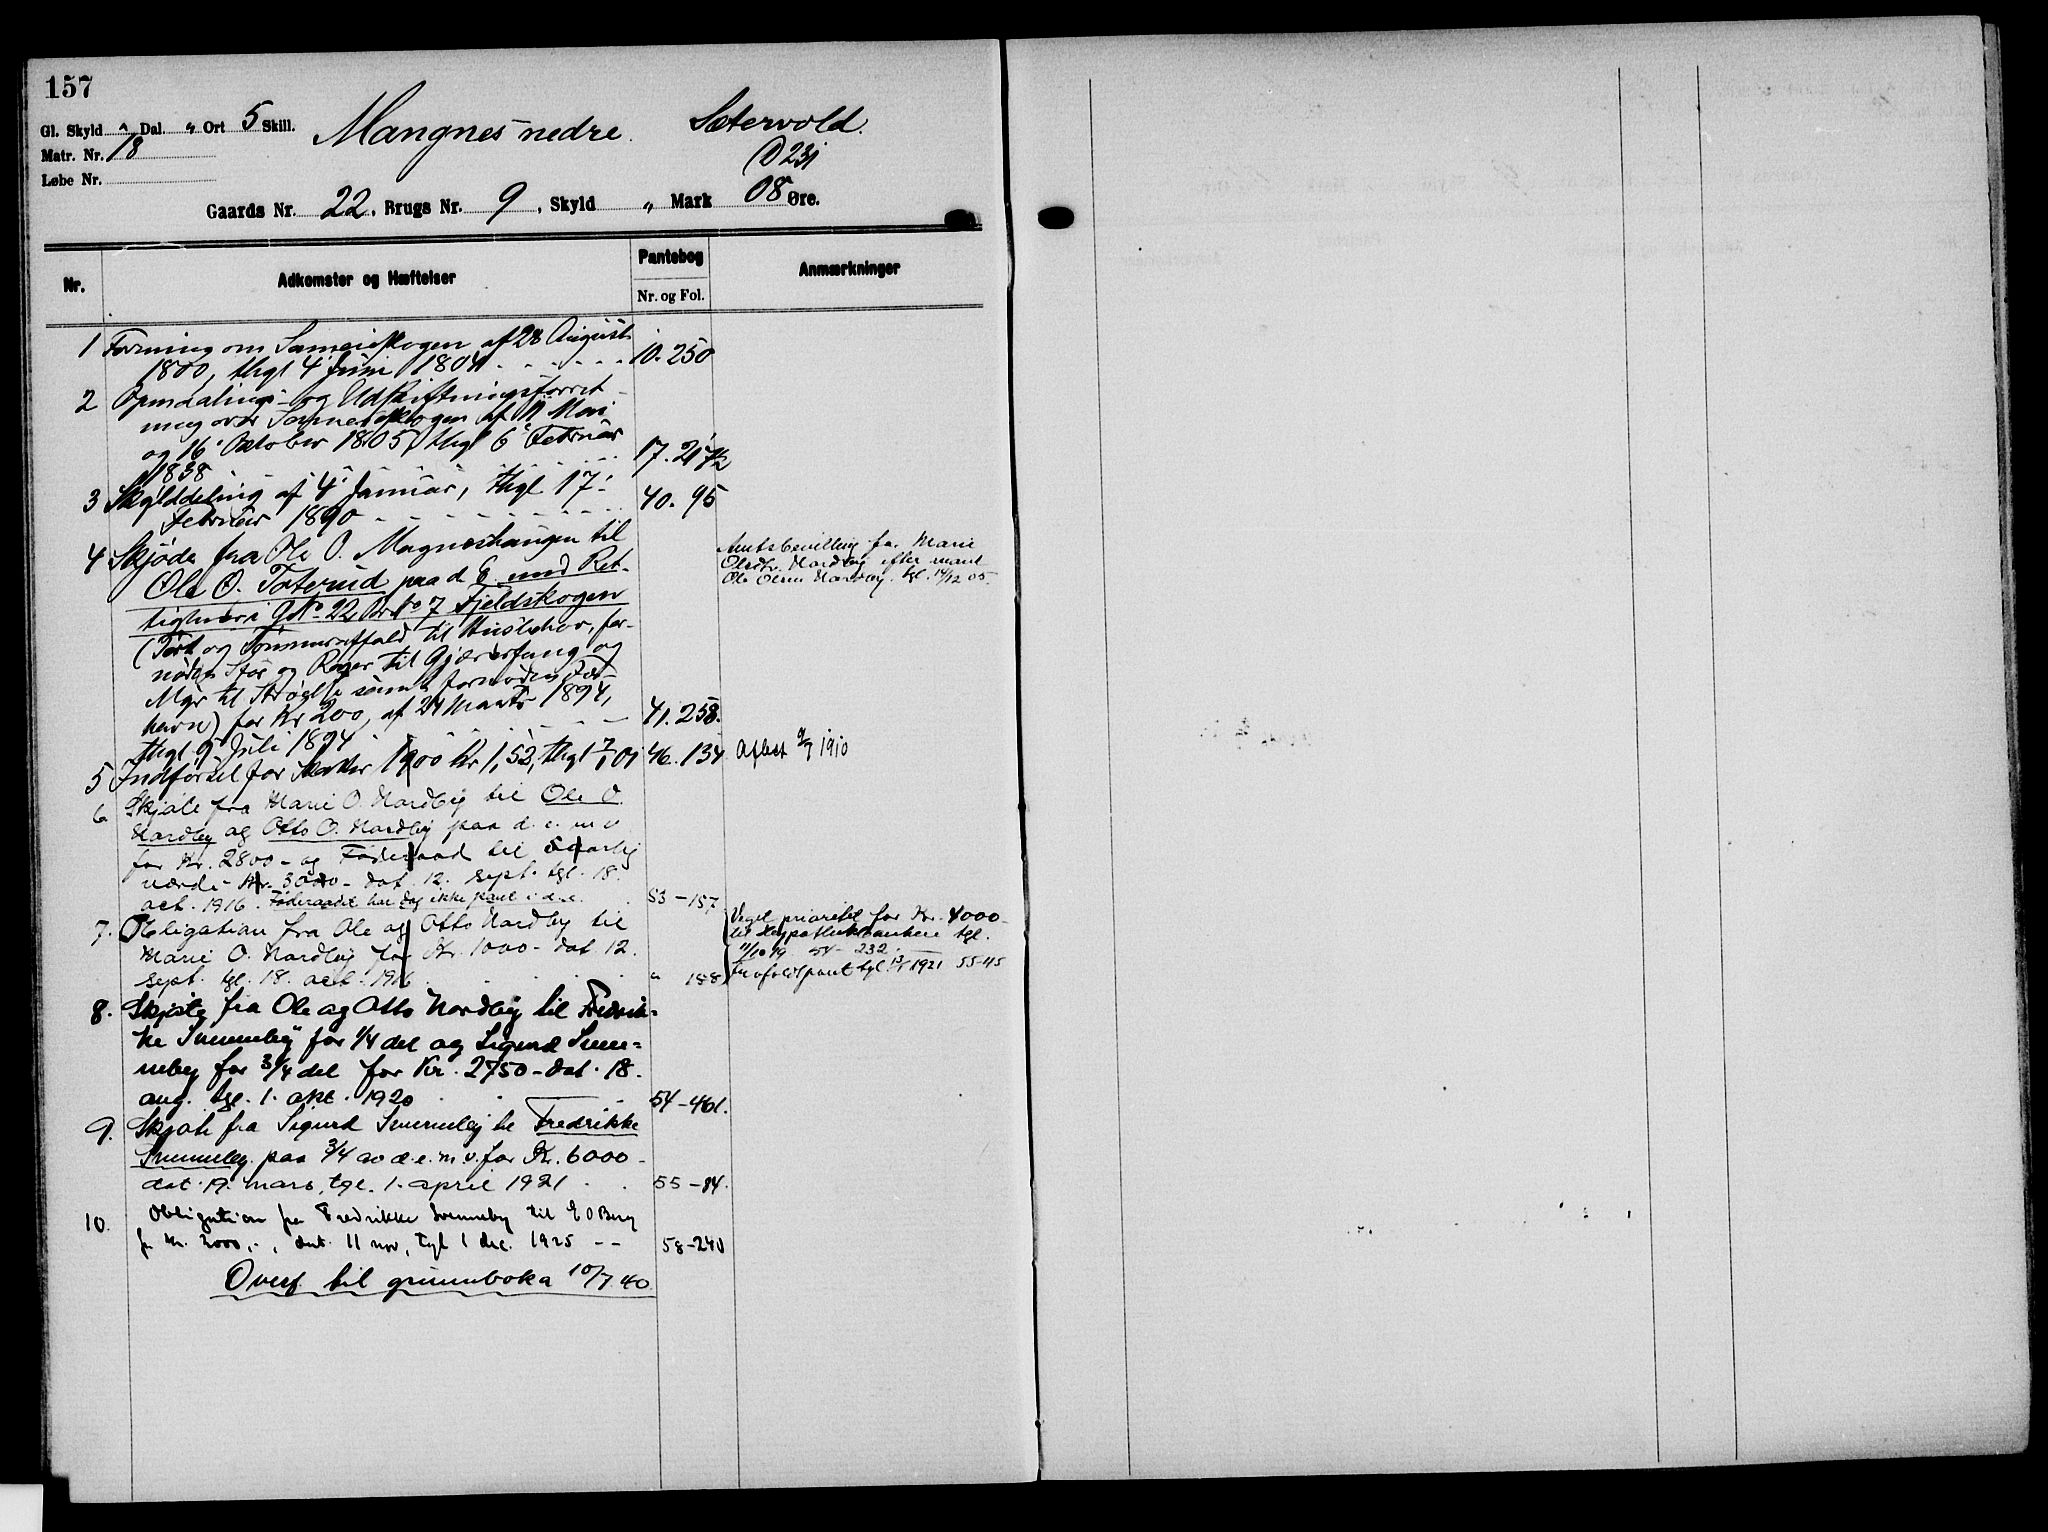 157
Gl. Skyld " Dal. " Ort 5 Skill.
Matr. Nr. 18
Løbe Nr.
Mangnes nedre. Sætervold.
D 231
Gaards Nr. 22, Brugs Nr. 9, Skyld " Mark 08 Øre.
Nr.
Adkomster og Hæftelser
Pantebog
Nr. og Fol.
Anmærkninger
1 Forening om Sameieskogen af 28 August
1800, thgl 4 Juni 1804 10. 250
2 Opmaalings- og Udskiftningsforret-
ning over Sameieskogen af Mai
og 16 Oktober 1805, thgl 6 Februar
1838 17. 217
3 Skylddeling af 4 Januar, thgl 17
Februar 1890 40. 95
4 Skjøde fra Ole O. Magneshaugen til
Ole O. Taterud paa d. E. med Ret-
tigheder i Gno 22, Brno 7 Fjeldskogen
(Tørt og Tømmeraffald til Husbehov, for-
nøden Stør og Rajer til Gjærdefang og
Myr til Strøelse samt fornøden
havn) for Kr 200, af 24 Marts 1894,
thgl 9 Juli 1894 41. 258.
Amtsbevilling for Marie
Olsdtr. Nordby efter mand
Ole Olsen Nordby. tgl. 14/12 05.
5 Indførsel for Skatter 1900 Kr 1,52, thgl 7/1 01 46. 134
Aflæst 9/7 1910
6 Skjøte fra Marie O. Nordby til Ole O.
Nordby og Otto O. Nordby paa d. e. m v
for Kr. 2800 - og Føderaad til 5 aarlig
værdi - Kr. 3000 - dat. 12. sept. tgl. 18.
oct. 1916. Føderaadet har dog ikke pant i d.e. 53 - 157
7. Obligation fra Ole og Otto Nordby til
Marie O. Nordby for Kr. 1000 - dat. 12.
sept. tgl. 18. oct. 1916 " 188
Veget prioritet for Kr. 4000 -
til Hypotekbanken tgl.
11/10 19 54 - 232.
Frafaldt pant tgl. 1921 55-45
8. Skjøte fra Ole og Otto Nordby til Fredrik-
ke Svenneby for 1/4 del og Sigurd Sven-
neby for 3/4 del for Kr. 2750 - dat. 18.
aug. tgl. 1. okt. 1920 54 - 461.
9. Skjøte fra Sigurd Svenneby til Fredrikke
Svenneby paa 3/4 av d. e. m. v. for Kr. 6000 -
dat. 19. mars, tgl. 1. april 1921 55 - 84.
10. Obligation fra Fredrikke Svenneby til E O Berg
for Kr. 2000,-, dat. 11 nov, tgl 1 dec. 1925 58 - 240
Overf. til grunnboka 10/7 40.